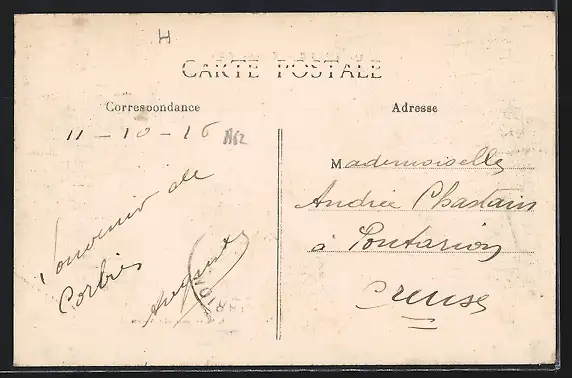 H
CARTE POSTALE
Correspondance
11 - 10 - 16
Souvenir de
Corbie
Adresse
Mademoiselle
Andrée Chastain
à Pontarion
Creuse